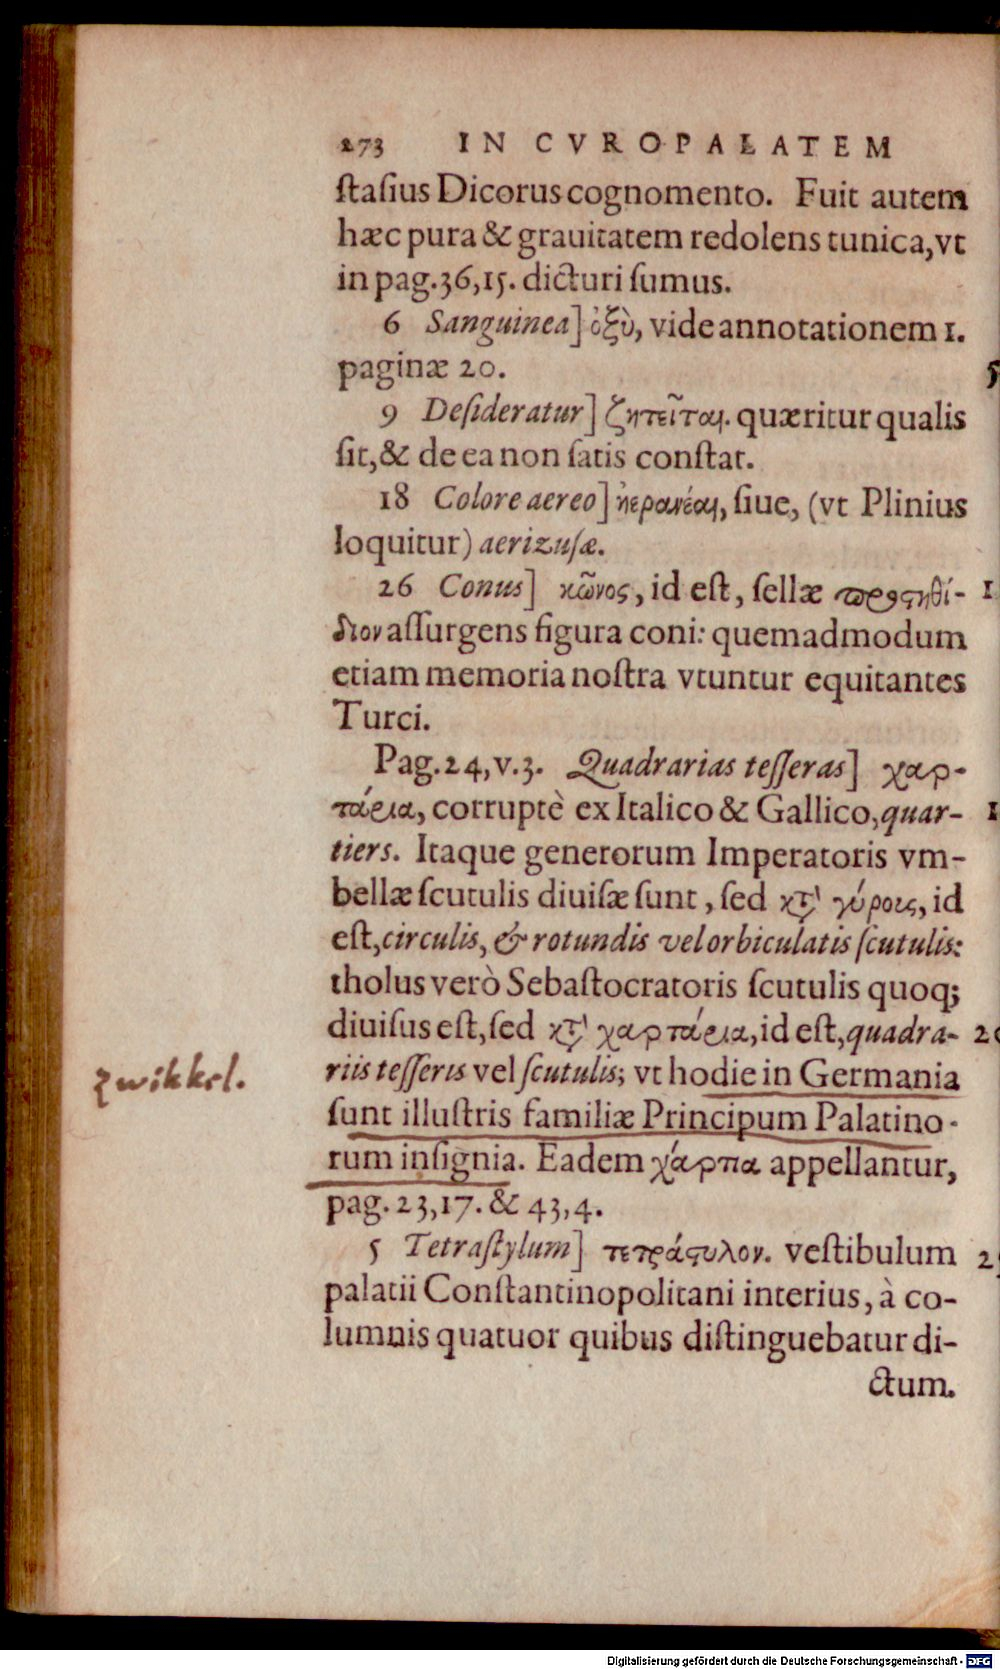 273 IN CVROPALATEM
stasius Dicorus cognomento. Fuit autem
hæc pura & grauitatem redolens tunica, vt
in pag. 36,15. dicturi sumus.
6 Sanguinea] ὀξὺ, vide annotationem 1.
paginæ 20. 5
9 Desideratur] ζητεῖται. quæritur qualis
sit, & de ea non satis constat.
18 Colore aereo] ἠερανέαι, siue, (vt Plinius
loquitur) aerizusæ.
26 Conus] κῶνος, id est, sellæ προςηθί- 1
διον assurgens figura coni: quemadmodum
etiam memoria nostra vtuntur equitantes
Turci.
Pag. 24, v. 3. Quadrarias tesseras] χαρ-
τάρια, corruptè ex Italico & Gallico, quar- 1
tiers. Itaque generorum Imperatoris vm-
bellæ scutulis diuisæ sunt, sed κτ̀ γύροις, id
est, circulis, & rotundis vel orbiculatis scutulis:
tholus verò Sebastocratoris scutulis quoq;
diuisus est, sed κτ̀ χαρτάρια, id est, quadra- 20
zwikkel. riis tesseris vel scutulis; vt hodie in Germania
sunt illustris familiæ Principum Palatino-
rum insignia. Eadem χάρπα appellantur,
pag. 23,17. & 43,4.
5 Tetrastylum] τετράςυλον. vestibulum 25
palatii Constantinopolitani interius, à co-
lumnis quatuor quibus distinguebatur di-
ctum.
Digitalisierung gefördert durch die Deutsche Forschungsgemeinschaft - DFG